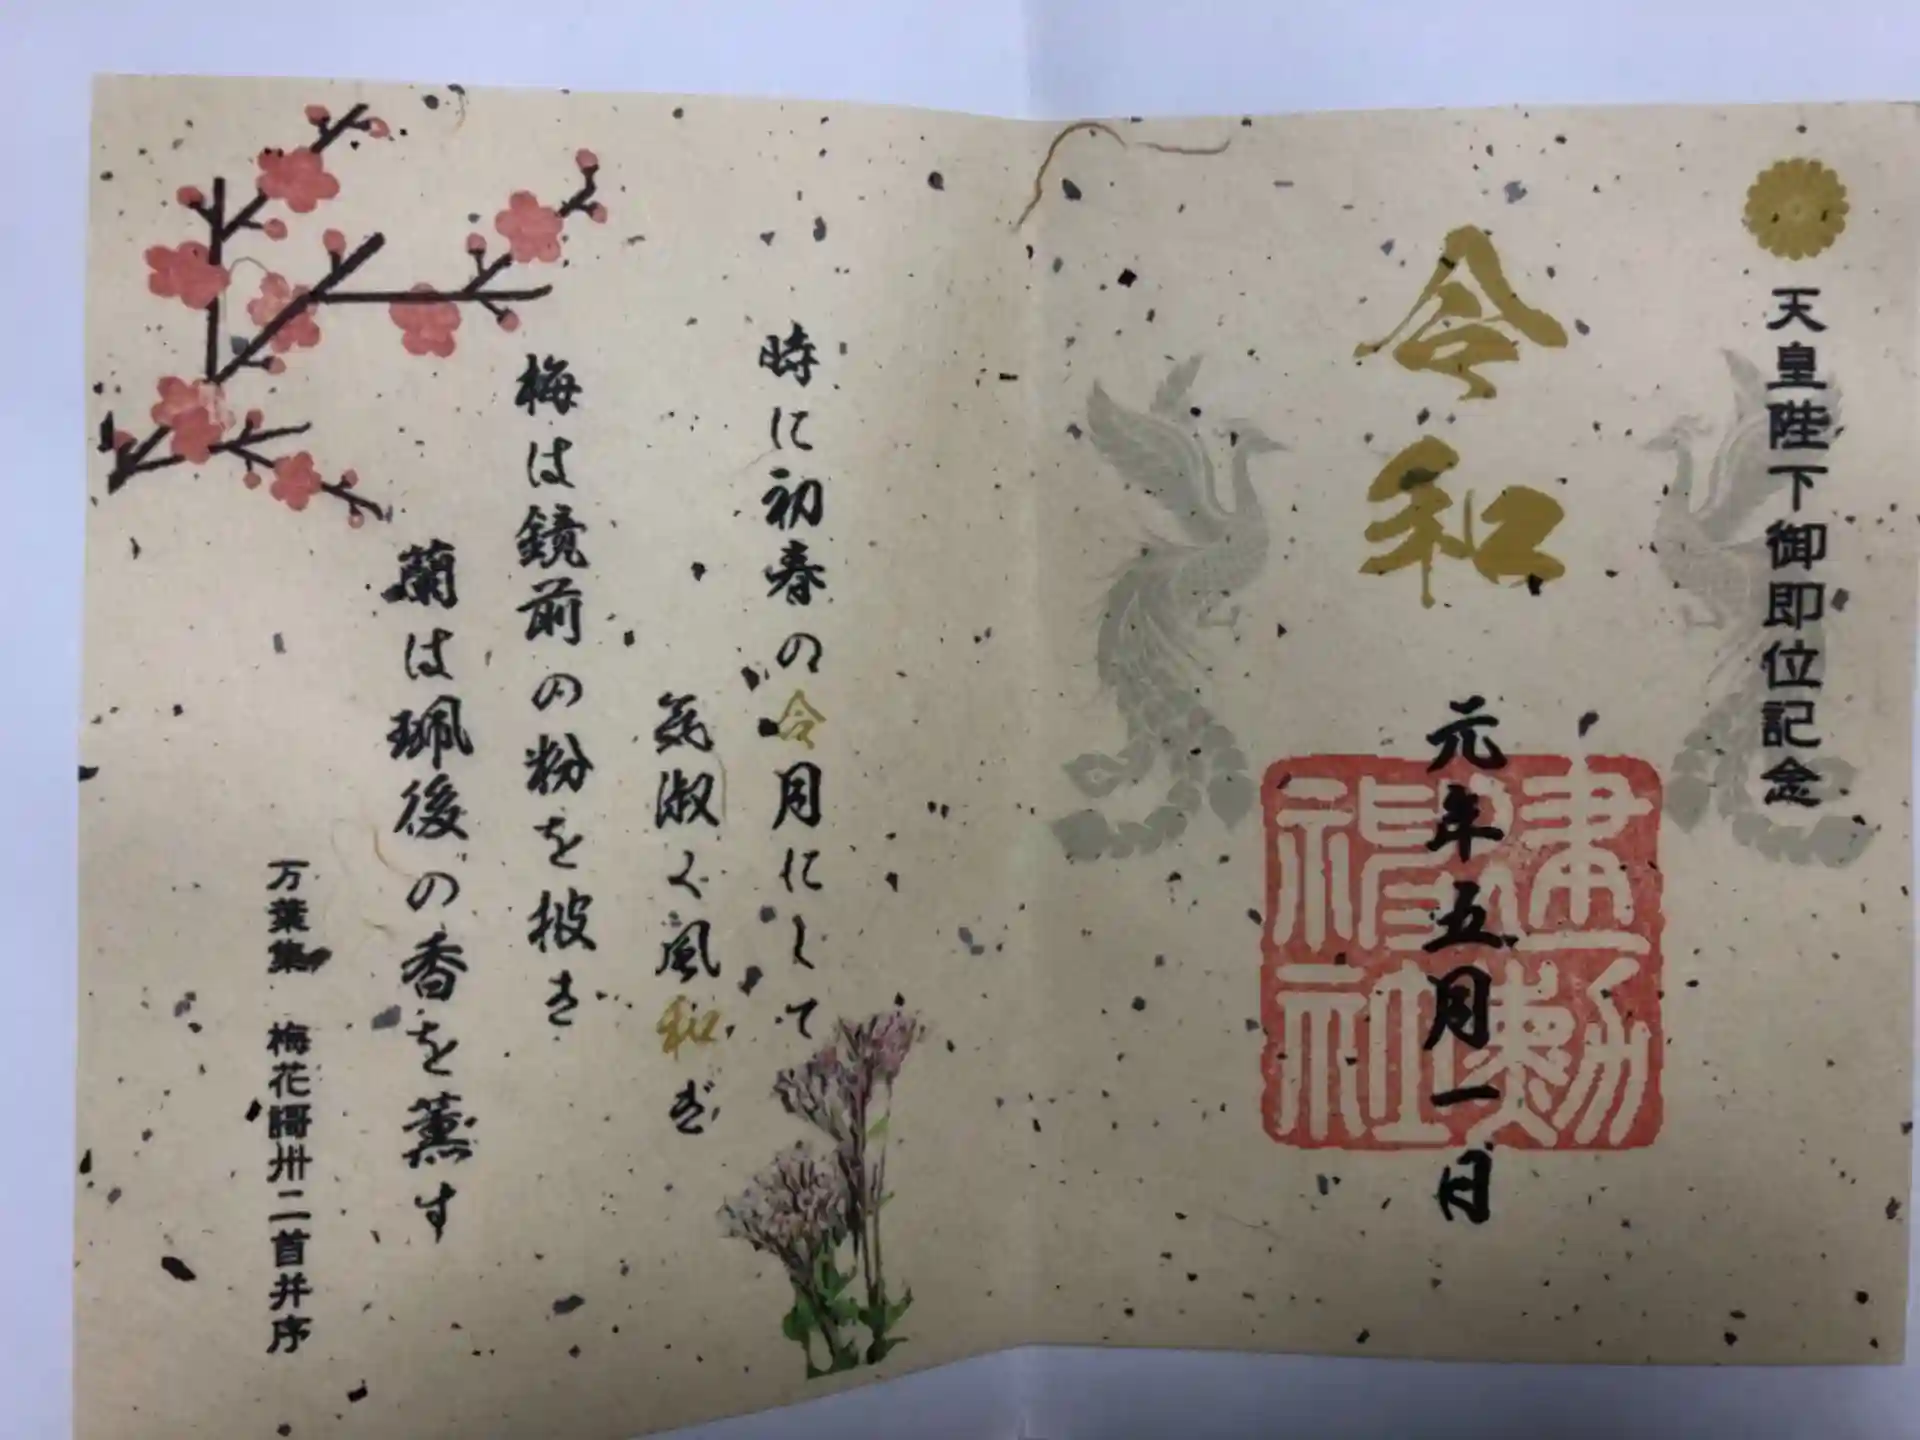 天皇陛下御即位記念
令和
元年五月一日
建勲神社
時に初春の令月にして
気淑く風和ぎ
梅は鏡前の粉を披き
蘭は珮後の香を薫す
万葉集 梅花謌卅二首并序